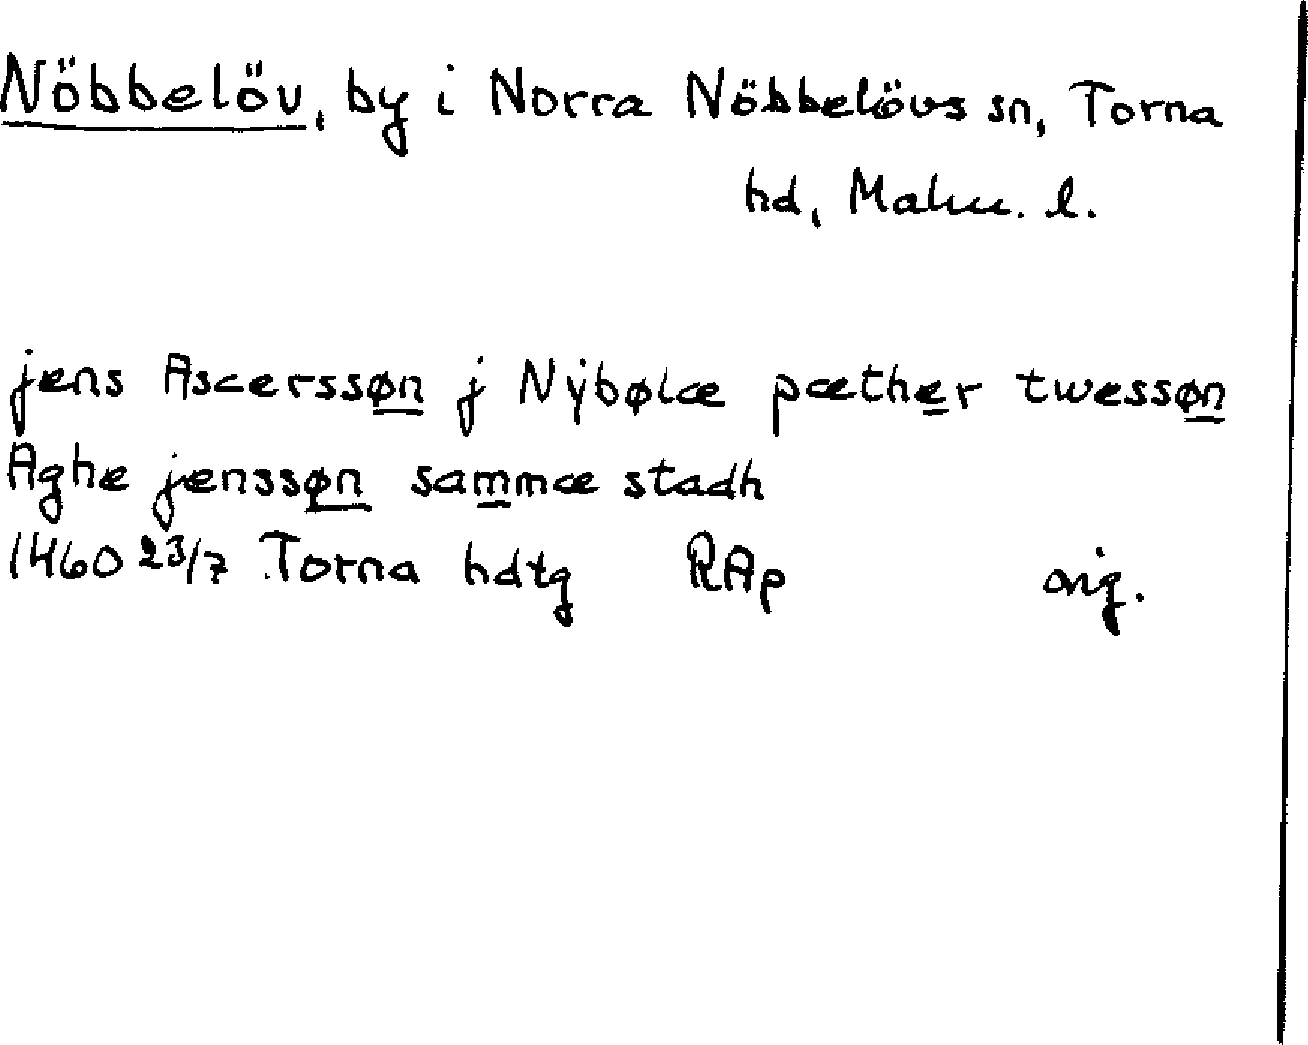 Nöbbelöv, by i Norra Nöbbelövs sn, Torna
hd, Malm. l.
jens Ascerssøn j Nÿbølæ pæther twessøn
Aghe jenssøn sammæ stadh
1460 23/7 Torna hdtg RAp orig.